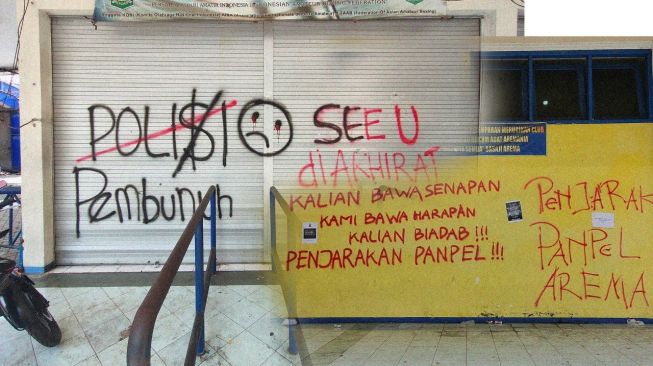 AMATEUR
POLI$I
SEE U
diAKHIRAT
Pembunuh
KALIAN BAWA SENAPAN
KAMI BAWA HARAPAN
KALIAN BIADAB !!!
PENJARAKAN PANPEL !!!
PENJARAK
PANPEL
AREMA